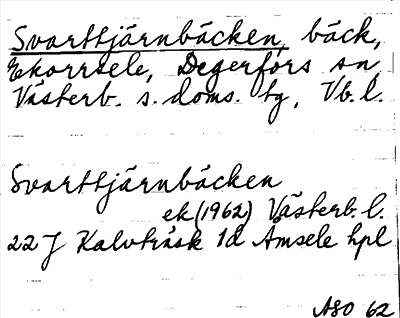 Svarttjärnbäcken, bäck,
Ekorrsele, Degerfors sn
Västerb. s. doms. tg, Vb. l.
Svarttjärnbäcken
ek (1962) Västerb. l.
22 J Kalvträsk 1d Åmsele hpl
ASO 62